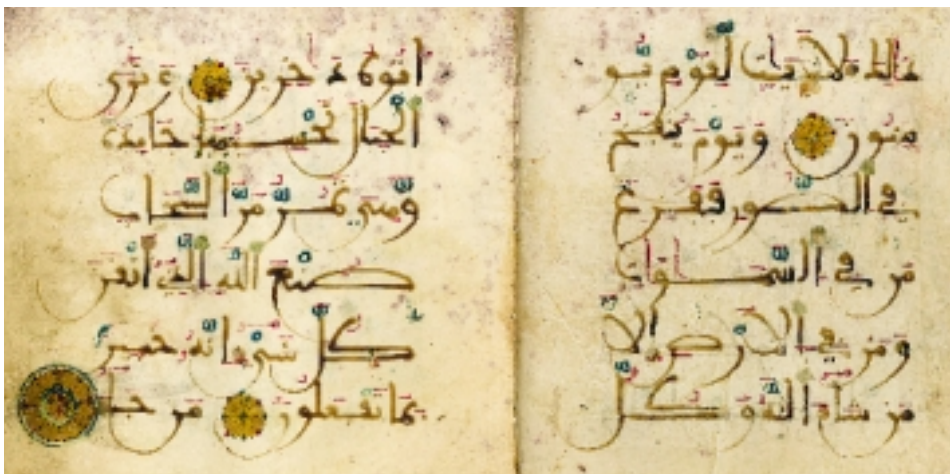 ذلك لايت لقوم يو
منون ويوم ينفخ
في الصور ففزع
من في السموات
ومن في الارض الا
من شاء الله وكل
اتوه دخرين وترى
الجبال تحسبها جامدة
وهي تمر مر السحاب
صنع الله الذي اتقن
كل شيء انه خبير
بما تفعلون من جا